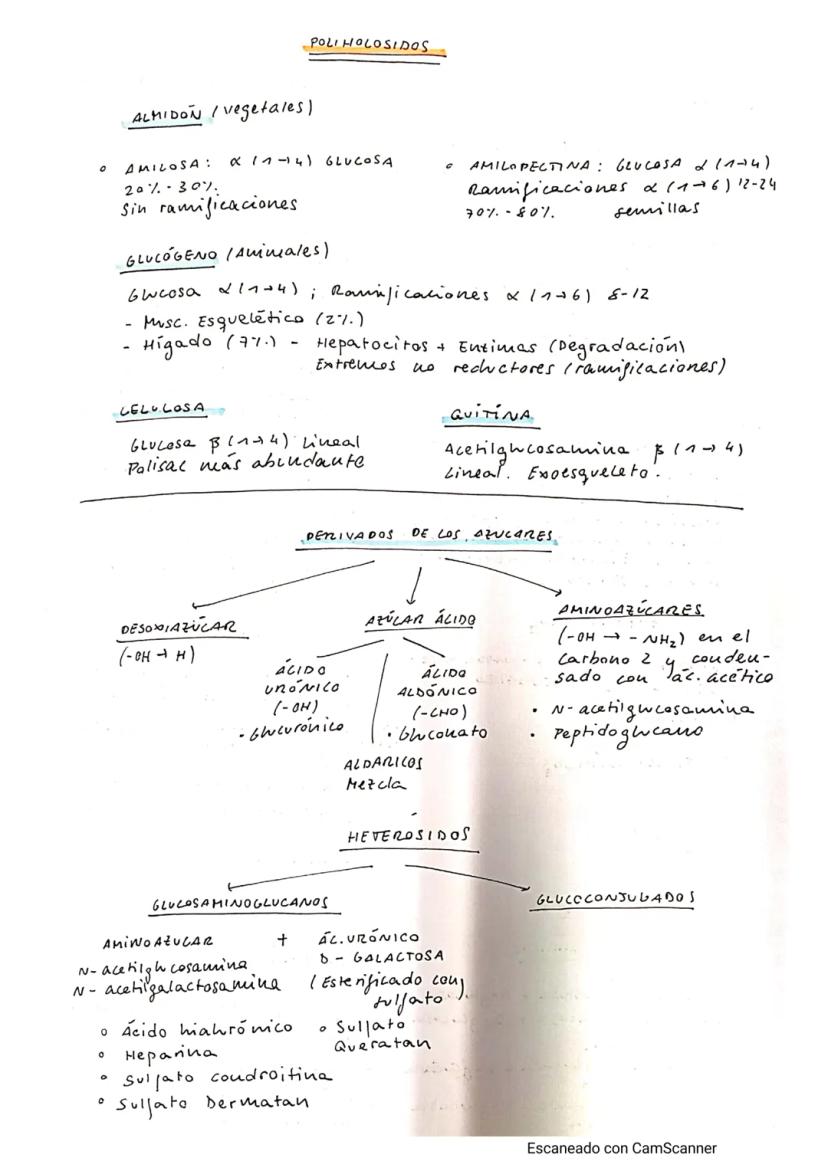 POLIHOLOSIDOS
ALMIDÓN (vegetales)
◦ AMILOSA: α (1→4) GLUCOSA
20% - 30%.
Sin ramificaciones
◦ AMILOPECTINA: GLUCOSA α (1→4)
Ramificaciones α (1→6) 12-24
70% - 80% semillas
GLUCÓGENO (Animales)
Glucosa α (1→4) ; Ramificaciones α (1→6) 8-12
- Musc. Esquelético (2%)
- Hígado (7%) - Hepatocitos + Enzimas (Degradación)
Extremos no reductores (ramificaciones)
CELULOSA
Glucosa β (1→4) Lineal
Polisac más abundante
QUITINA
Acetilglucosamina β (1→4)
Lineal. Exoesqueleto.
DERIVADOS DE LOS AZUCARES
DESOXIAZÚCAR
(-OH → H)
AZÚCAR ÁCIDO
ÁCIDO
URÓNICO
(-OH)
• Glucurónico
ÁCIDO
ALDÓNICO
(-CHO)
• Gluconato
ALDARICOS
Mezcla
AMINOAZÚCARES
(-OH → -NH₂) en el
Carbono 2 y conden-
sado con ác. acético
• N-acetilglucosamina
• Peptidoglucano
HETEROSIDOS
GLUCOSAMINOGLUCANOS
AMINOAZUCAR + ÁC. URÓNICO
N-acetilglucosamina D-GALACTOSA
N-acetilgalactosamina (Esterificado con
sulfato)
◦ Ácido hialurónico ◦ Sulfato
◦ Heparina Queratan
◦ Sulfato condroitina
◦ Sulfato Dermatan
GLUCOCONJUGADOS
Escaneado con CamScanner